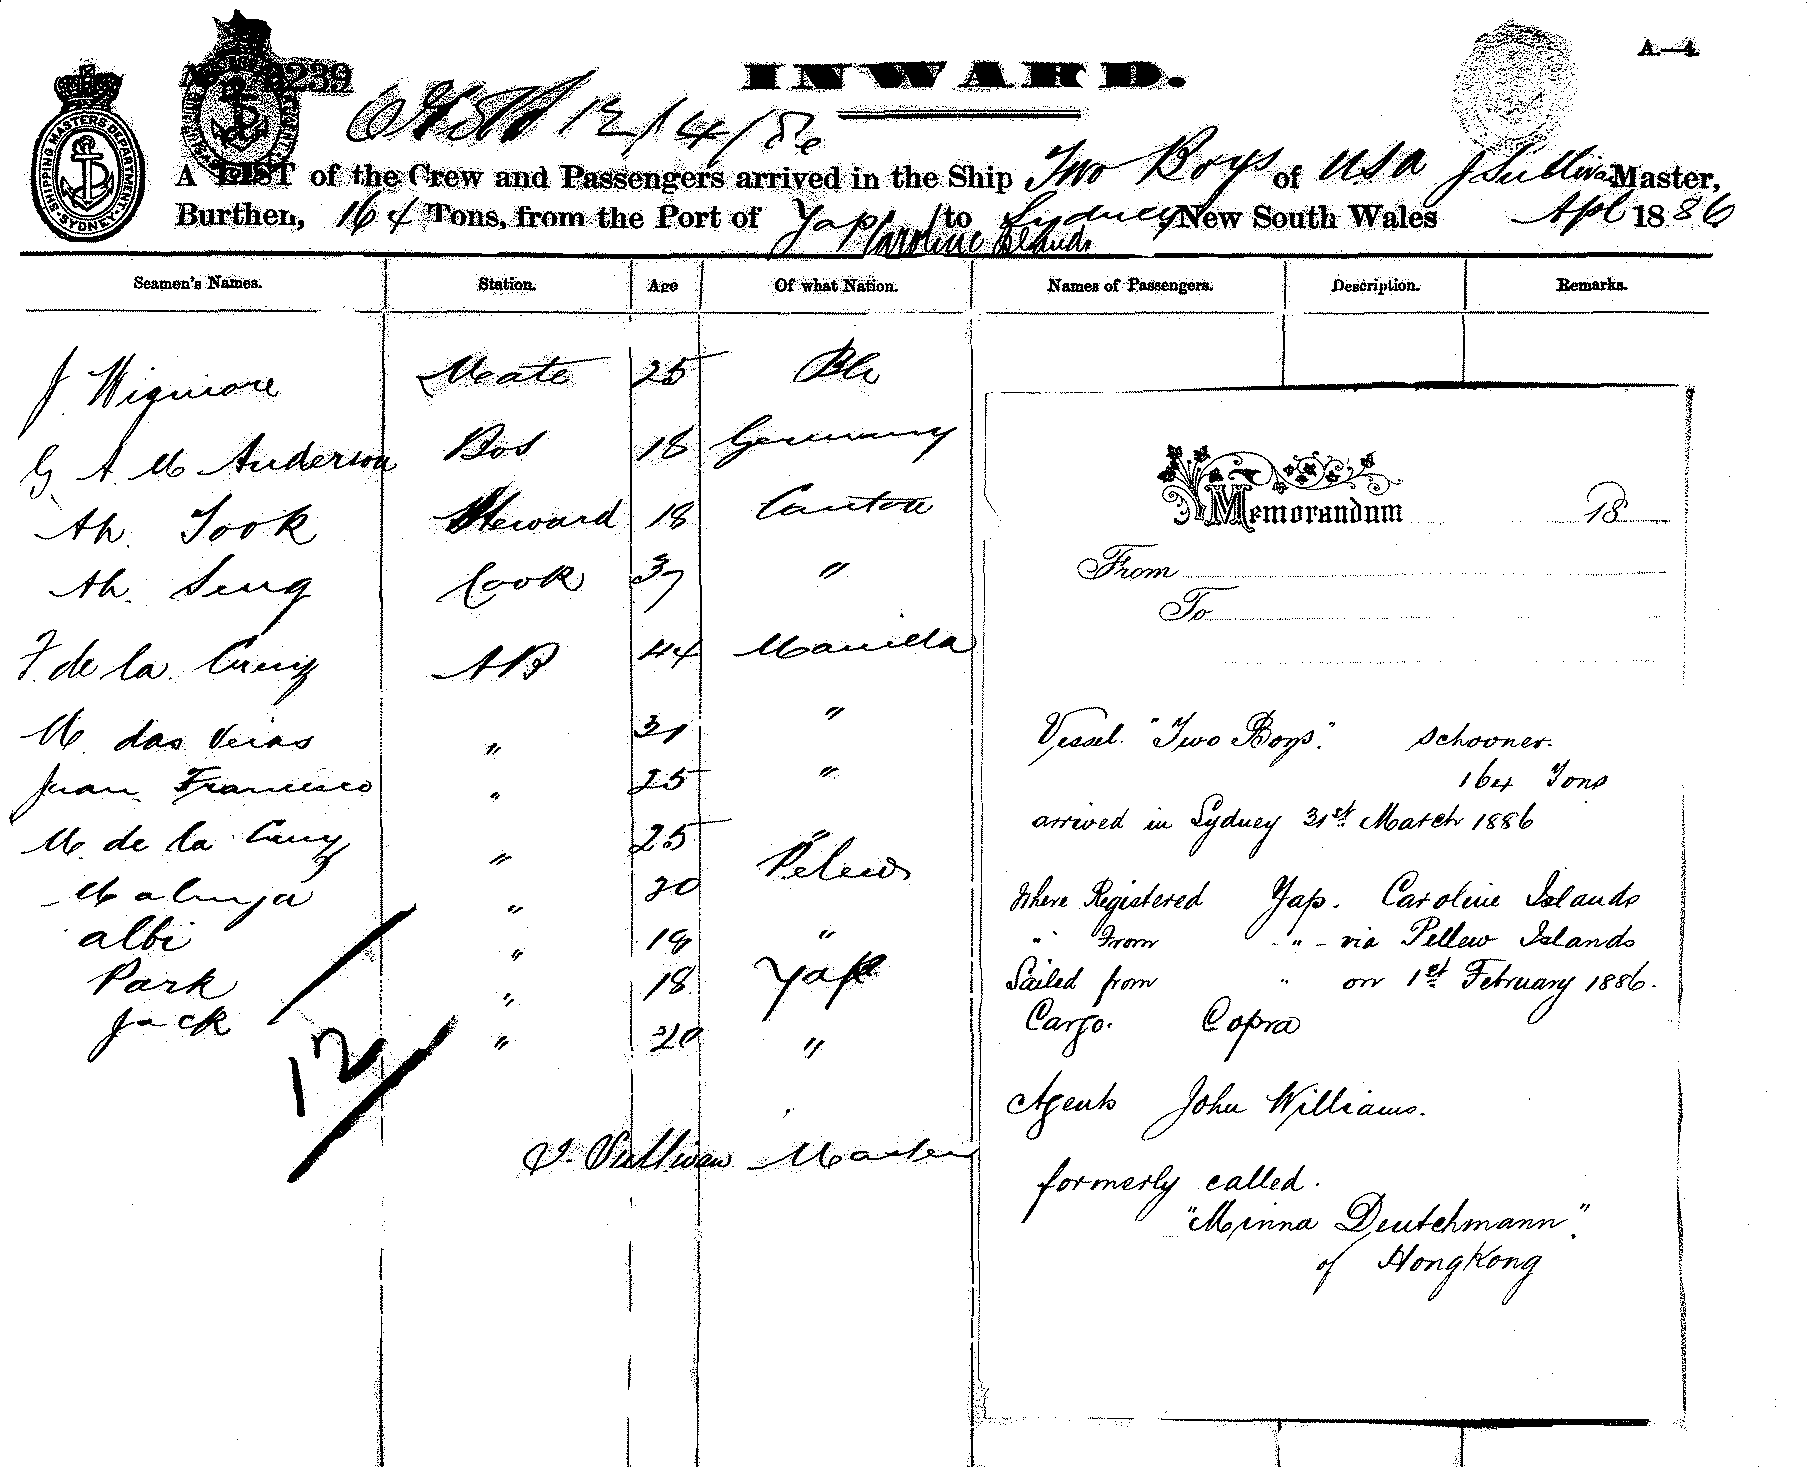 INWARD.
A.—4.
239
12/4/86
A LIST of the Crew and Passengers arrived in the Ship Two Boys of USA J Sullivan Master,
Burthen, 164 Tons, from the Port of Yap Caroline Islands to Sydney New South Wales Apl 1886
SHIPPING MASTERS DEPARTMENT SYDNEY
Seamen's Names. Station. Age Of what Nation. Names of Passengers. Description. Remarks.
J Wigmore Mate 25
G A M Anderson Bos 18 Germany
Ah Took Steward 18 Canton
Ah Seng Cook 37 "
F de la Cruz AB 44 Manilla
M das " 31 "
Juan Francisco " 25 "
M. de la Cruz " 25 "
" 20 Pelew
albi " 18 "
Park " 18 Yap
Jack " 20 "
12
J. Sullivan Master
Memorandum 18
From
To
Vessel. "Two Boys". Schooner.
164 Tons
arrived in Sydney 31st March 1886
Where Registered Yap. Caroline Islands
" From " - via Pellew Islands
Sailed from " on 1st February 1886.
Cargo. Copra
Agents John Williams.
formerly called.
"Minna Deutchmann".
of HongKong